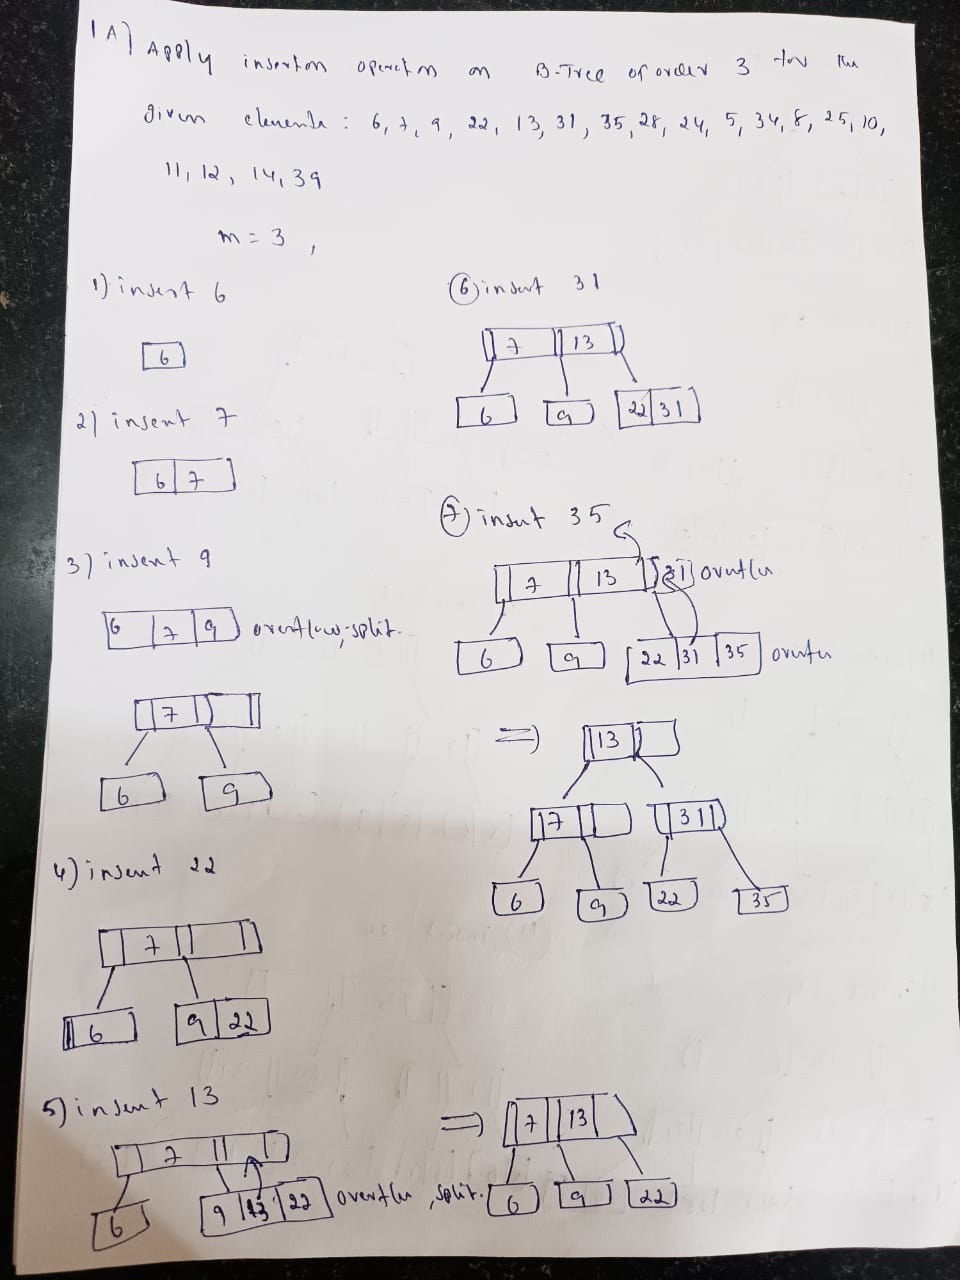 1A) Apply insertion operation on B-Tree of order 3 for the
given elements : 6, 7, 9, 22, 13, 31, 35, 28, 24, 5, 34, 8, 25, 10,
11, 12, 14, 39
m = 3 ,
1) insert 6
6
2) insert 7
6 7
3) insert 9
6 7 9 overflow, split.
7
6 9
4) insert 22
7
6 9 22
5) insert 13
7
6 9 13 22 overflow, split.
=> 7 13
6 9 22
6) insert 31
7 13
6 9 22 31
7) insert 35
7 13 31 overflow
6 9 22 31 35 overflow
=> 13
7 31
6 9 22 35